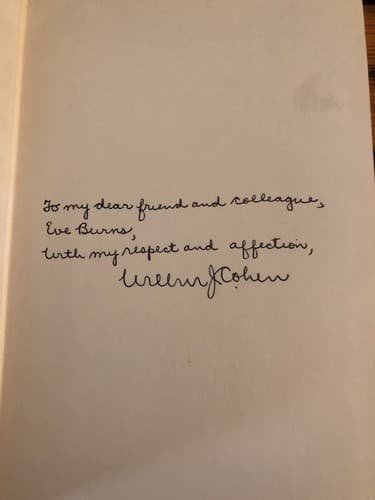 To my dear friend and colleague,
Eve Burns,
With my respect and affection,
Wilbur J. Cohen